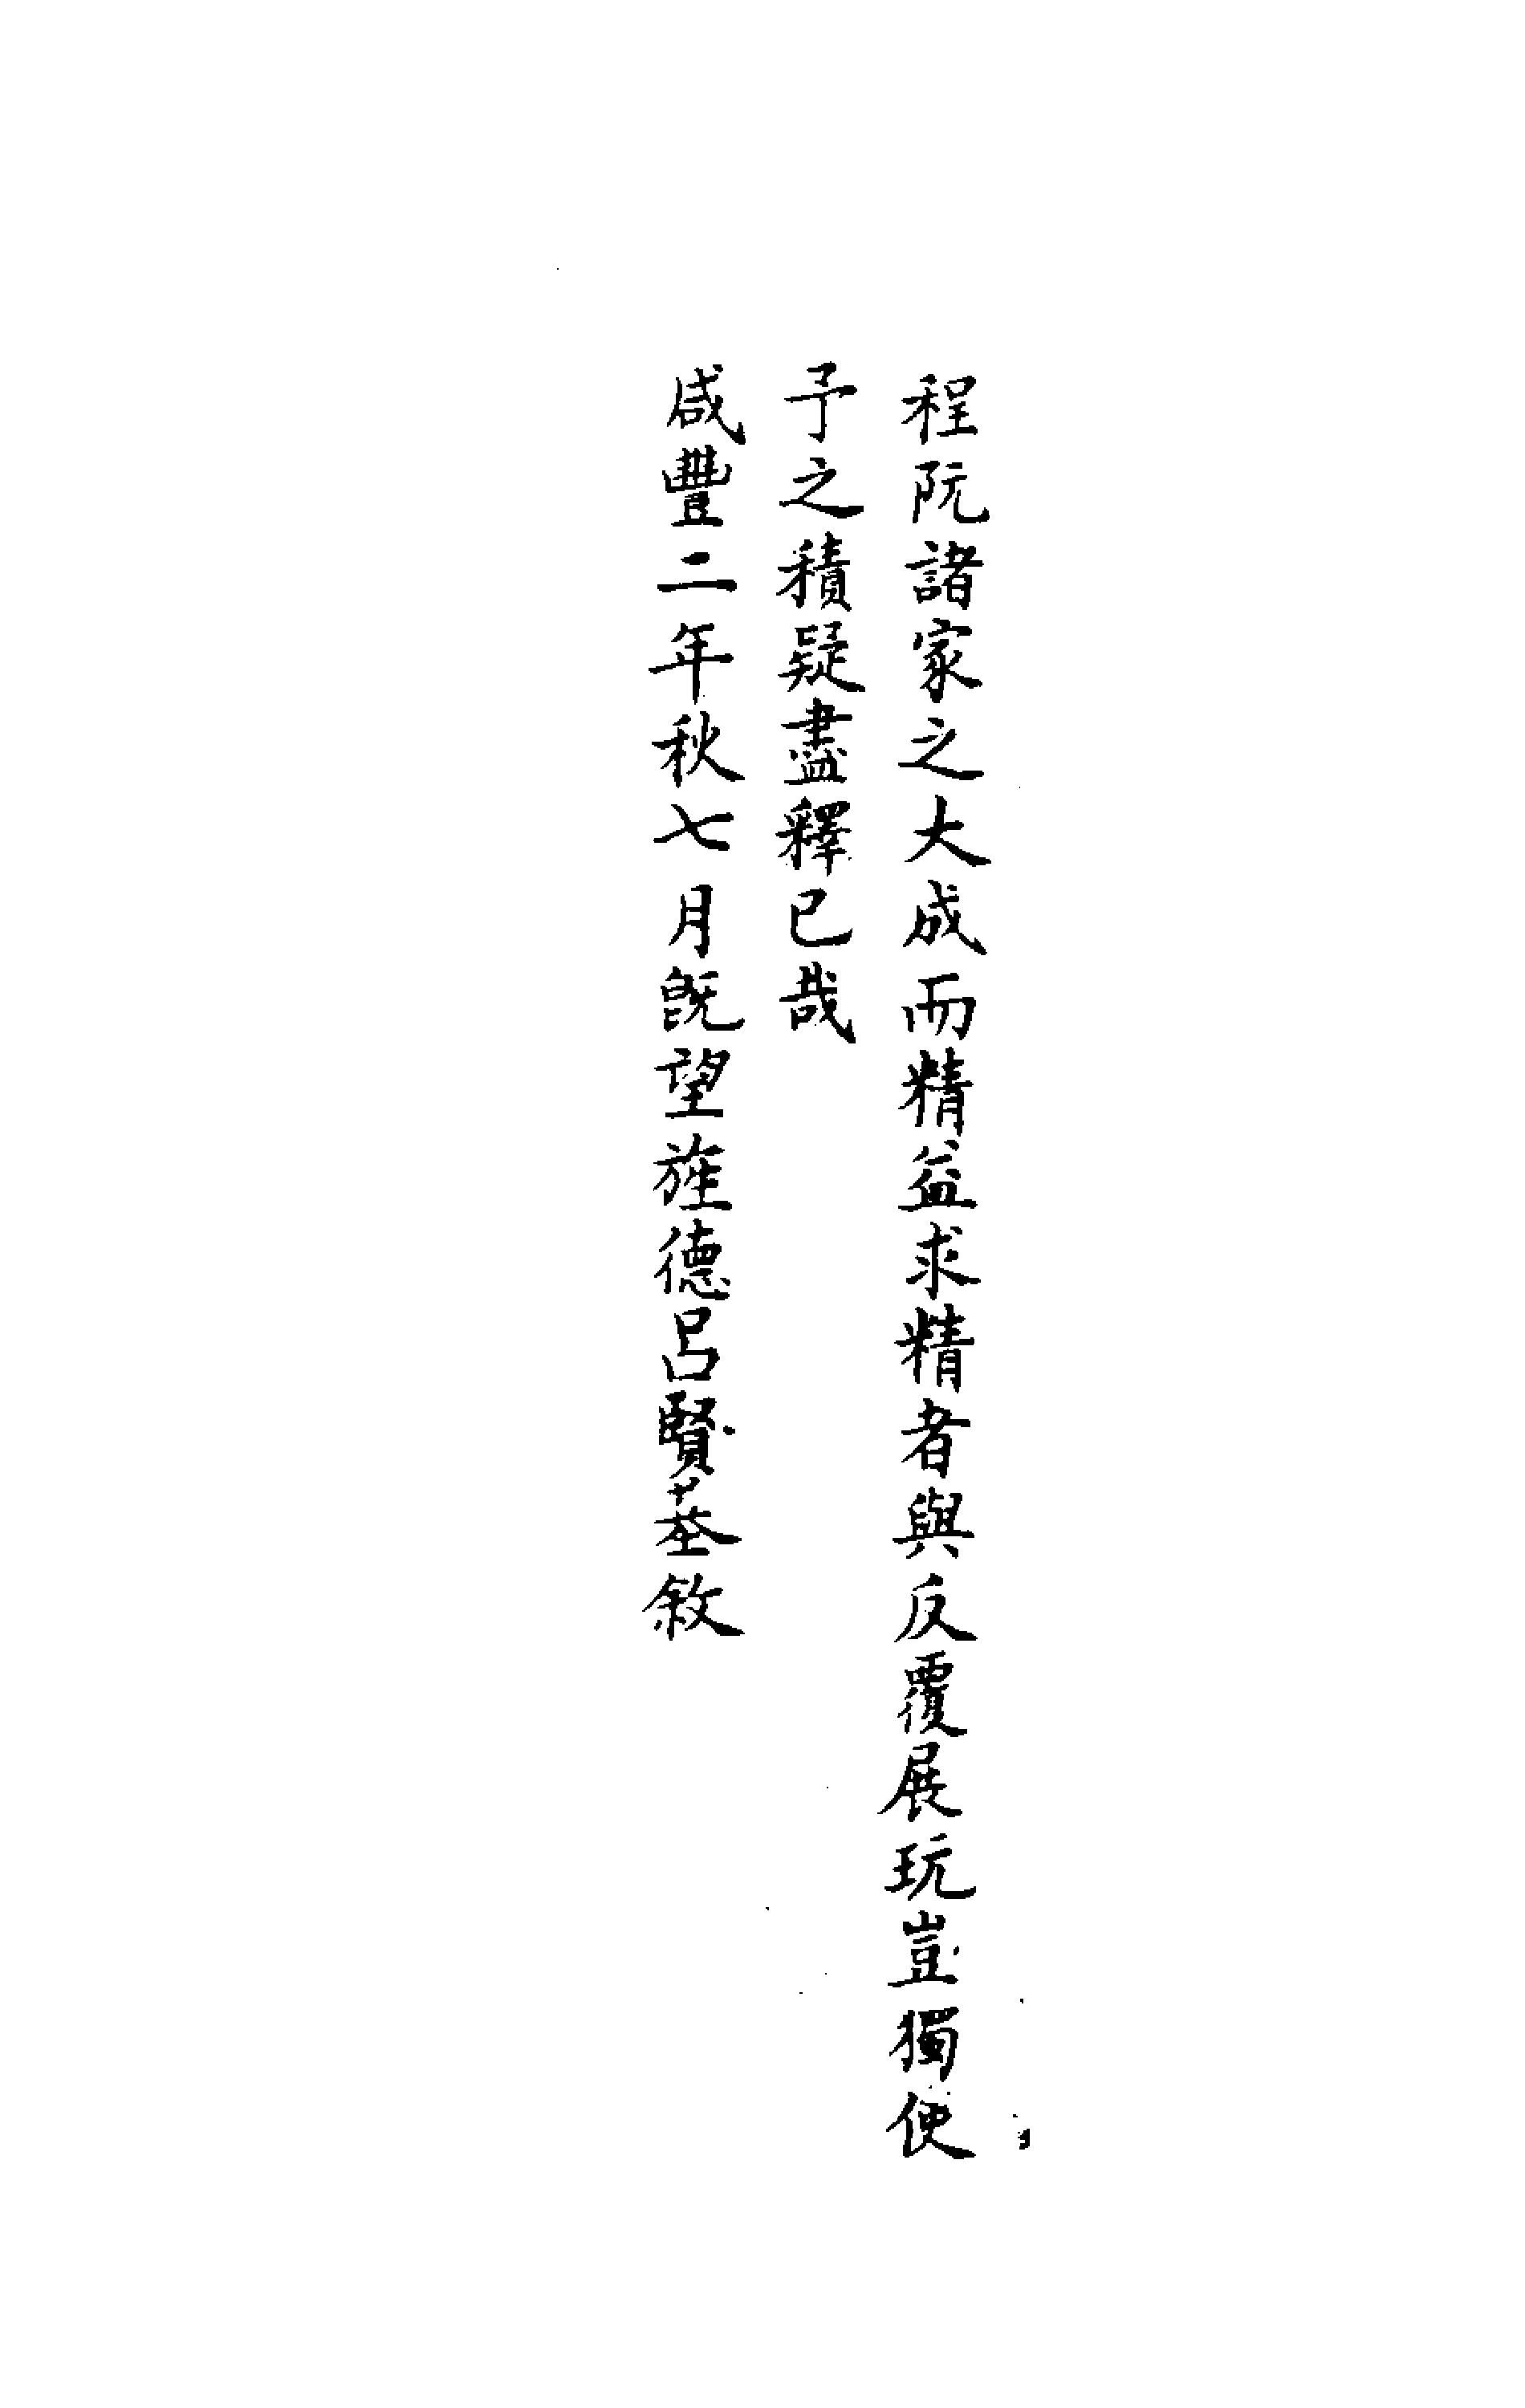 程阮諸家之大成而精益求精者與反覆展玩豈獨使
予之積疑盡釋已哉
咸豐二年秋七月旣望旌德呂賢基敘